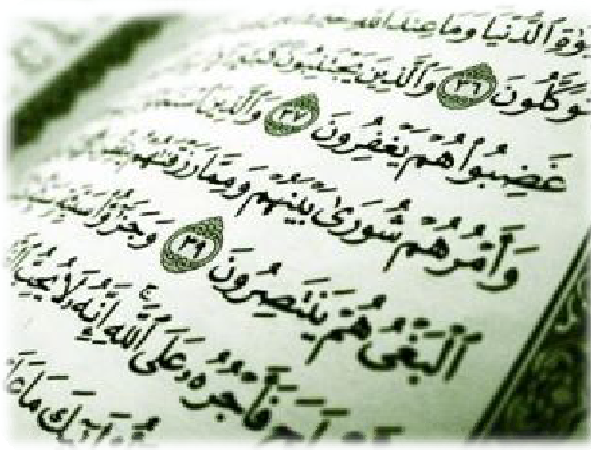 ٱلدُّنْيَا وَمَا عِندَ ٱللَّهِ
تَوَكَّلُونَ ٣٦ وَٱلَّذِينَ يَجْتَنِبُونَ
غَضِبُوا۟ هُمْ يَغْفِرُونَ ٣٧ وَٱلَّذِينَ
وَأَمْرُهُمْ شُورَىٰ بَيْنَهُمْ وَمِمَّا رَزَقْنَٰهُمْ
ٱلْبَغْىُ هُمْ يَنتَصِرُونَ ٣٩ وَجَزَٰٓؤُا۟ سَيِّئَةٍ
فَأَجْرُهُۥ عَلَى ٱللَّهِ ۚ إِنَّهُۥ لَا يُحِبُّ
مَا